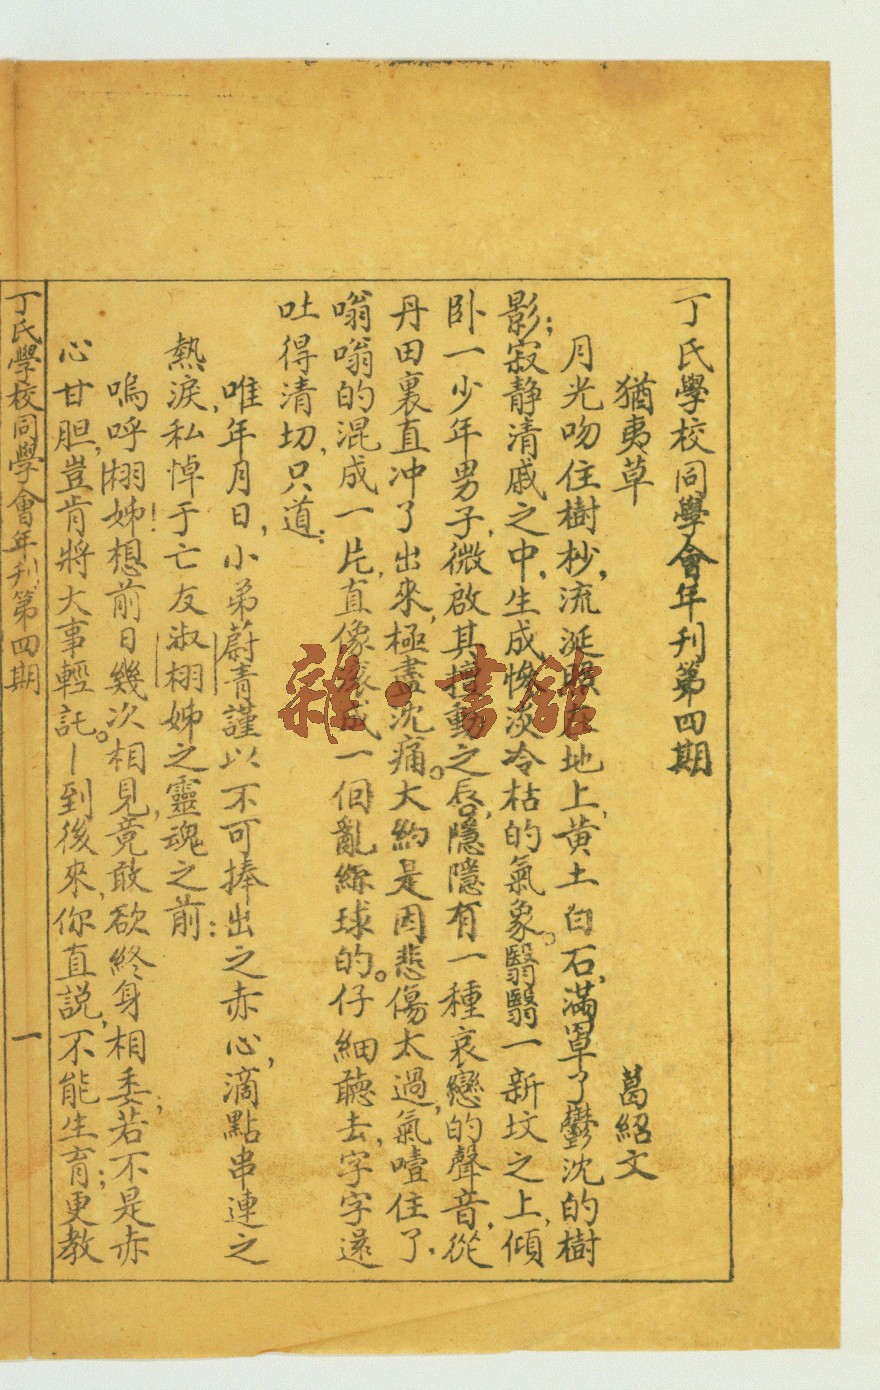 丁氏學校同學會年刊第四期
猶夷草　葛紹文
月光吻住樹杪,流涎照在地上,黃土白石,滿罩了鬱沈的樹
影;寂静清戚之中,生成慘淡冷枯的氣象。翳翳一新坟之上,傾
卧一少年男子,微啟其擅動之唇,隱隱有一種哀戀的聲音,從
丹田裏直冲了出來,極盡沈痛。大約是因悲傷太過,氣噎住了,
嗡嗡的混成一片,直像滚成一個亂絲球的。仔細聽去,字字還
吐得清切,只道:
唯年月日,小弟蔚青謹以不可捧出之赤心,滴點串連之
熱淚,私悼于亡友淑栩姊之靈魂之前:
嗚呼栩姊!想前日幾次相見,竟敢欲終身相委;若不是赤
心甘胆,豈肯將大事輕託。—到後來,你直説,不能生育;更教
丁氏學校同學會年刊第四期　一
雜·書館